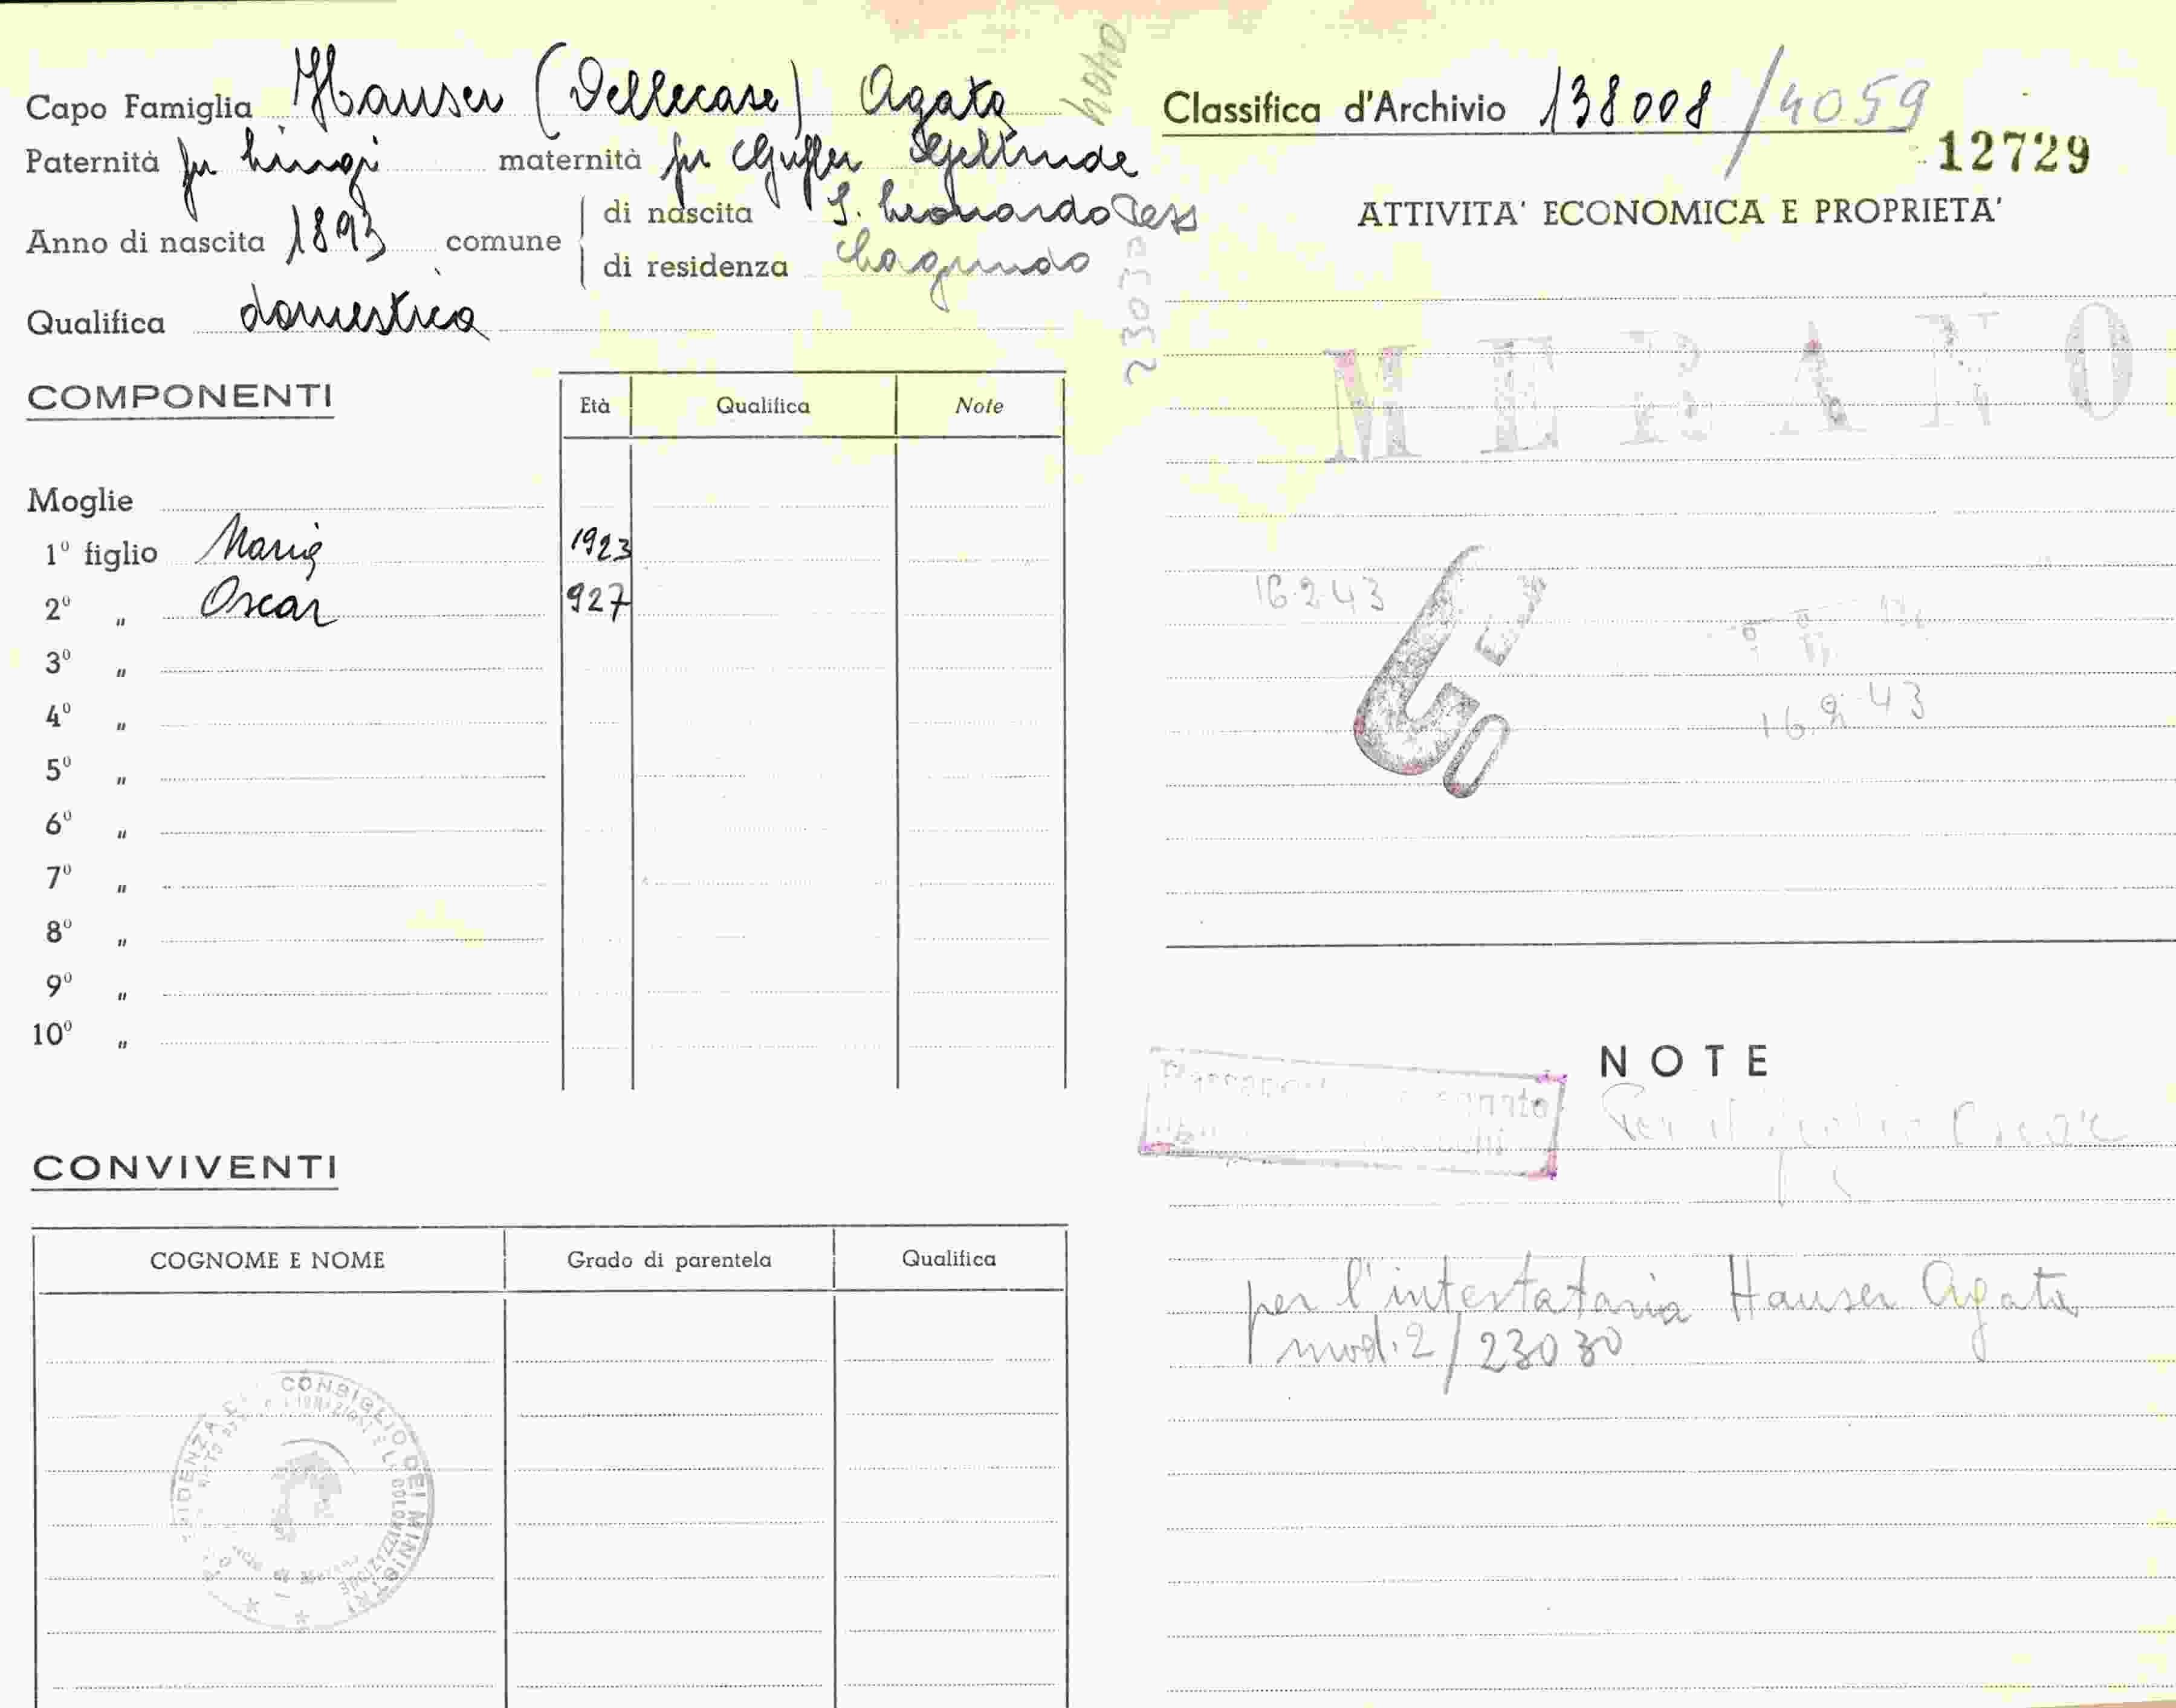 Capo Famiglia Hauser (Dellecase) Agata
Paternità fu Luigi maternità fu Gufler Geltrude
Anno di nascita 1893 comune di nascita S. Leonardo Pass
di residenza Lagundo
Qualifica domestica
COMPONENTI
Età Qualifica Note
Moglie
1º figlio Maria 1923
2º " Oscar 927
3º "
4º "
5º "
6º "
7º "
8º "
9º "
10º "
CONVIVENTI
COGNOME E NOME Grado di parentela Qualifica
CONSIGLIO DEI MINISTRI
23030
Classifica d'Archivio 138008/4059
12729
ATTIVITA' ECONOMICA E PROPRIETA'
MERANO
16.2.43
16.2.43
NOTE
Per il Oscar
per l'intestataria Hauser Agata
mod. 2/23030